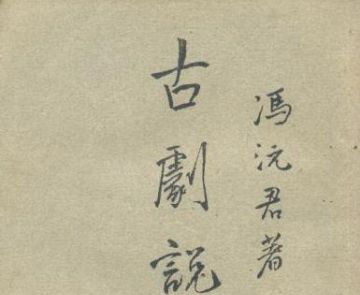 古劇說
馮沅君著